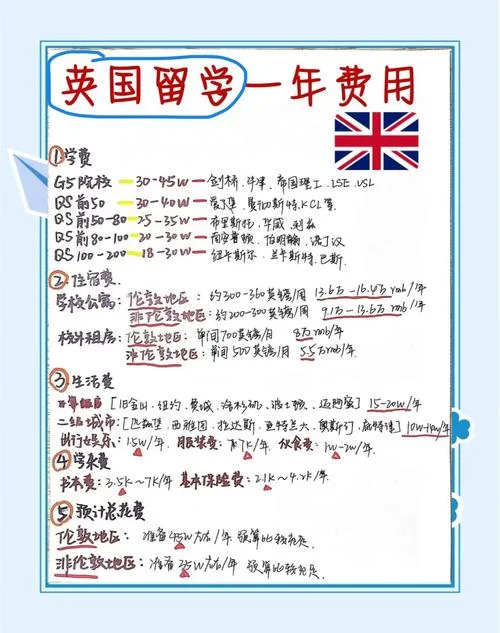 英国留学一年费用
①学费
G5院校 — 30-45W — 剑桥、牛津、帝国理工、LSE、USL
QS前50 — 30-40W — 爱丁堡、曼彻斯特、KCL等
QS前50-80 — 25-35W — 布里斯托、华威、利兹
QS前80-100 — 20-30W — 南安普顿、伯明翰、诺丁汉
QS100-200 — 18-30W — 纽卡斯尔、兰卡斯特、巴斯
②住宿费
学校公寓: 伦敦地区: 约300-360英镑/周 13.6万-16.4万rmb/年
非伦敦地区: 约200-300英镑/周 9.1万-13.6万rmb/年
校外租房: 伦敦地区: 单间700英镑/月 8万rmb/年
非伦敦地区: 单间500英镑/月 5.5万rmb/年
③生活费
[旧金山、纽约、费城、洛杉矶、波士顿、] 15-20W/年
二级城市: [匹兹堡、西雅图、拉达斯、亚特兰大、奥斯汀、]
出行娱乐: 1.5W/年 服装费: 7K/年 伙食费: 1W-2W/年
④学杂费
书本费: 3.5K~7K/年 基本保险费: 2.1K~4.2K/年
⑤预计总花费
伦敦地区: 准备45W左右/年 预算比较充足.
非伦敦地区: 准备35W左右/年 预算比较充足.